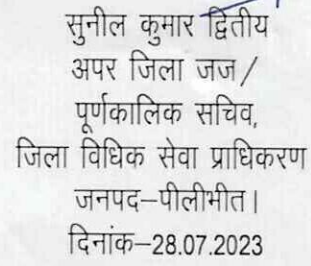 सुनील कुमार द्वितीय
अपर जिला जज/
पूर्णकालिक सचिव,
जिला विधिक सेवा प्राधिकरण
जनपद–पीलीभीत।
दिनांक–28.07.2023